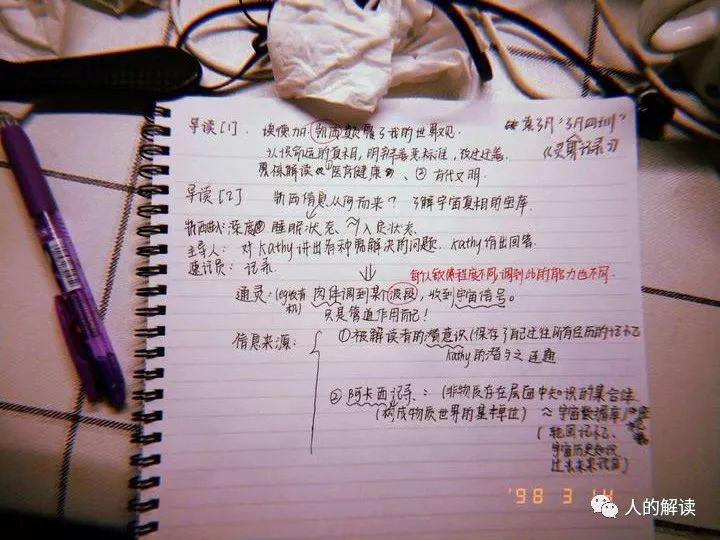 导读[1]. 读懂加 凯西颠覆了我的世界观. 袁3月"3月回训"
认识命运的真相,明辨善恶标准,改过迁善. 《灵界记录》
凯西解读《①医疗健康》、②古代文明.
导读[2] 凯西信息从何而来? 了解宇宙真相的宝库.
凯西进入深度 睡眠状态 ≈ 入定状态.
主导人: 对Kathy讲出各种需解决的问题. Kathy给出回答.
速记员: 记录.
每个人敏傳程度不同,调到此的能力也不同.
通灵: (eg收音机) 肉体调到某个波段,收到宇宙信号。
只是管道作用而已!
信息来源: ①被解读者的潜意识(保存了自己过往所有经历的记忆
Kathy的潜与之连通
② 阿卡西记录: (非物质存在层面中知识的集合体.
(构成物质世界的基本单位) ≈宇宙数据库
(轮回记忆、
宇宙历史知识
过去未来讯息)
'98 3 14
人的解读